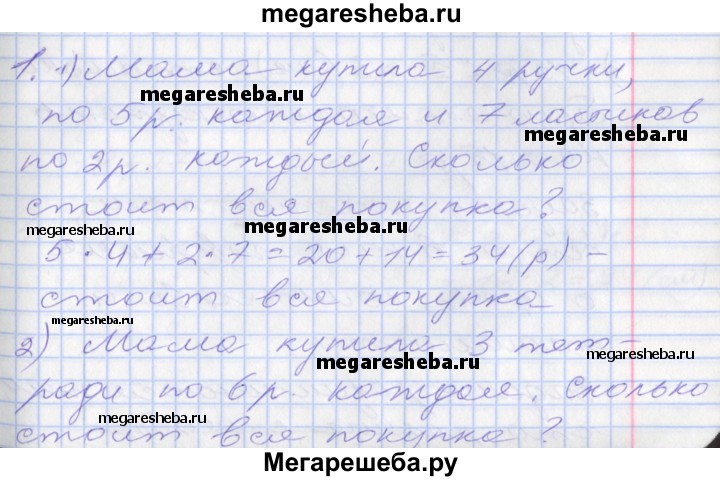 megaresheba.ru
1. 1) Мама купила 4 ручки,
megaresheba.ru megaresheba.ru
по 5 р. каждая и 7 ластиков
megaresheba.ru
по 2 р. каждый. Сколько
стоит вся покупка?
megaresheba.ru megaresheba.ru
5 · 4 + 2 · 7 = 20 + 14 = 34 (р) –
стоит вся покупка
megaresheba.ru
2) Мама купила 3 тет-
megaresheba.ru megaresheba.ru
ради по 6 р. каждая. Сколько
megaresheba.ru megaresheba.ru
стоит вся покупка?
Мегарешеба.ру